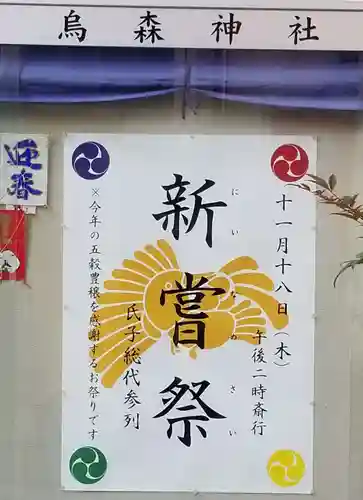 烏森神社
十一月十八日(木)
午後二時斎行
新嘗祭
にいなめさい
氏子総代参列
※今年の五穀豊穣を感謝するお祭りです
迎春